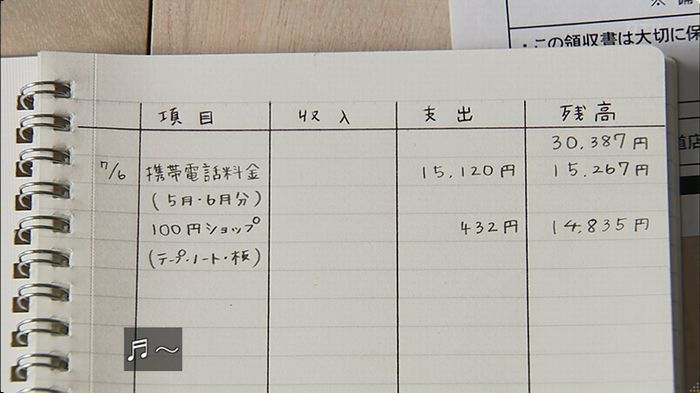 ・この領収書は大切に保
項目 収入 支出 残高
30,387円
7/6 携帯電話料金 15,120円 15,267円
(5月・6月分)
100円ショップ 432円 14,835円
(テープ・ノート・板)
♬～